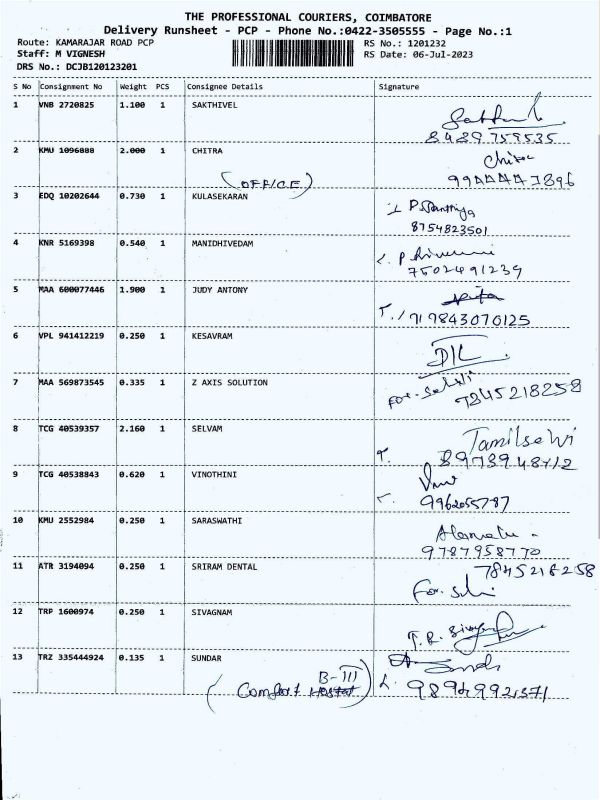 THE PROFESSIONAL COURIERS, COIMBATORE
Delivery Runsheet - PCP - Phone No.:0422-3505555 - Page No.:1
Route: KAMARAJAR ROAD PCP RS No.: 1201232
Staff: M VIGNESH RS Date: 06-Jul-2023
DRS No.: DCJB120123201
S No Consignment No Weight PCS Consignee Details Signature
1 VNB 2720825 1.100 1 SAKTHIVEL
8489759535
2 KMU 1096888 2.000 1 CHITRA Chitra
(OFFICE)
3 EDQ 10202644 0.730 1 KULASEKARAN
8754823501
4 KNR 5169398 0.540 1 MANIDHIVEDAM
7502491239
5 MAA 600077446 1.900 1 JUDY ANTONY
9843070125
6 VPL 941412219 0.250 1 KESAVRAM
7 MAA 569873545 0.335 1 Z AXIS SOLUTION For. Selvi
7845218258
8 TCG 40539357 2.160 1 SELVAM Tamilselvi
9 TCG 40538843 0.620 1 VINOTHINI
10 KMU 2552984 0.250 1 SARASWATHI
9787958770
11 ATR 3194094 0.250 1 SRIRAM DENTAL 7845218258
For.
12 TRP 1600974 0.250 1 SIVAGNAM
T.R.
13 TRZ 335444924 0.135 1 SUNDAR
B-III
(Comfort Hostel)